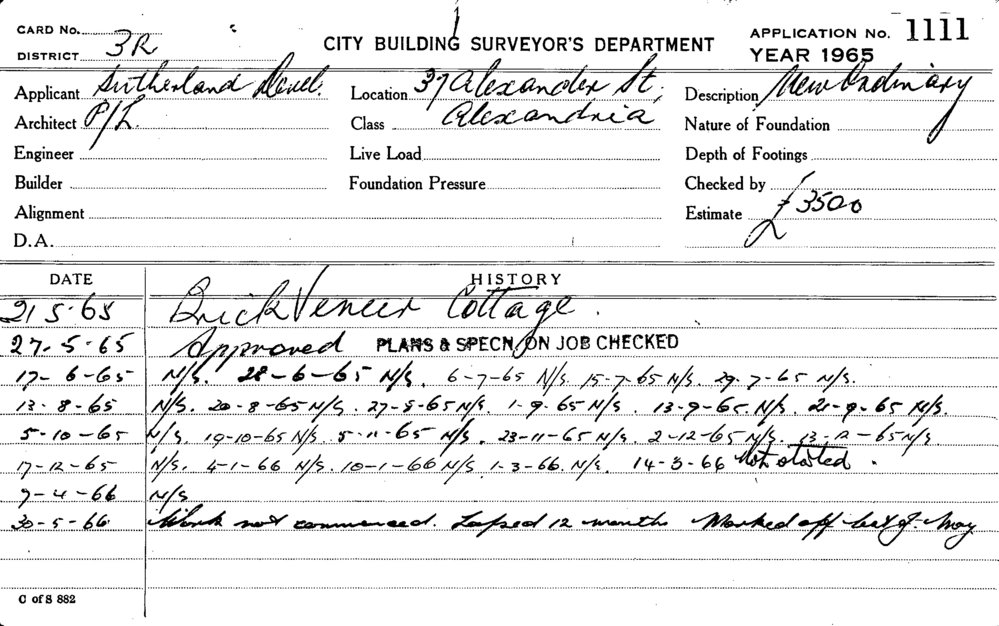 CARD No.
DISTRICT 3R
CITY BUILDING SURVEYOR'S DEPARTMENT
APPLICATION No. 1111
YEAR 1965
Applicant Sutherland Devel.
Location 37 Alexander St,
Description New Ordinary
Architect P/L.
Class Alexandria
Nature of Foundation
Engineer
Live Load
Depth of Footings
Builder
Foundation Pressure
Checked by
Alignment
Estimate £ 3500
D.A.
DATE HISTORY
21 5·65 Brick Veneer Cottage.
27-5-65 Approved PLANS & SPECN, ON JOB CHECKED
17-6-65 N/S. 28-6-65 N/S. 6-7-65 N/S. 15-7-65 N/S. 29-7-65 N/S.
13-8-65 N/S. 20-8-65 N/S. 27-8-65 N/S. 1-9-65 N/S. 13-9-65 N/S. 21-9-65 N/S.
5-10-65 N/S. 19-10-65 N/S. 5-11-65 N/S. 23-11-65 N/S. 2-12-65 N/S. 13-12-65 N/S.
17-12-65 N/S. 4-1-66 N/S. 10-1-66 N/S. 1-3-66. N/S. 14-3-66 Not stated.
7-4-66 N/S
30-5-66 Work not commenced. Lapsed 12 months Marked off of May
C of S 882